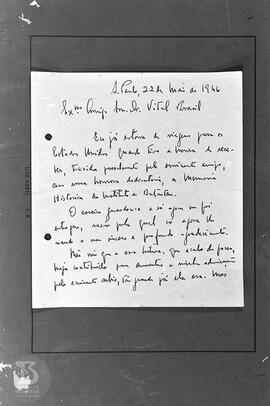 S. Paulo, 22 de Maio de 1946
Exmo Amigo Snr. Dr. Vital Brasil
Eu já estava de viagem para os
Estados Unidos quando tive a honra de rece-
ber, trazida pessoalmente pelo eminente amigo,
com uma honrosa dedicatoria, a Memoria
Historica do Instituto de Butantan.
O correio e só agora me foi
entregue, razão pela qual só agora lhe
mando o meu sincero e profundo agradecimento.
Não creio que a sua leitura, que acabo de fazer,
haja contribuido para aumentar a minha admiração
pelo eminente sabio, tão grande já ela era. Mas